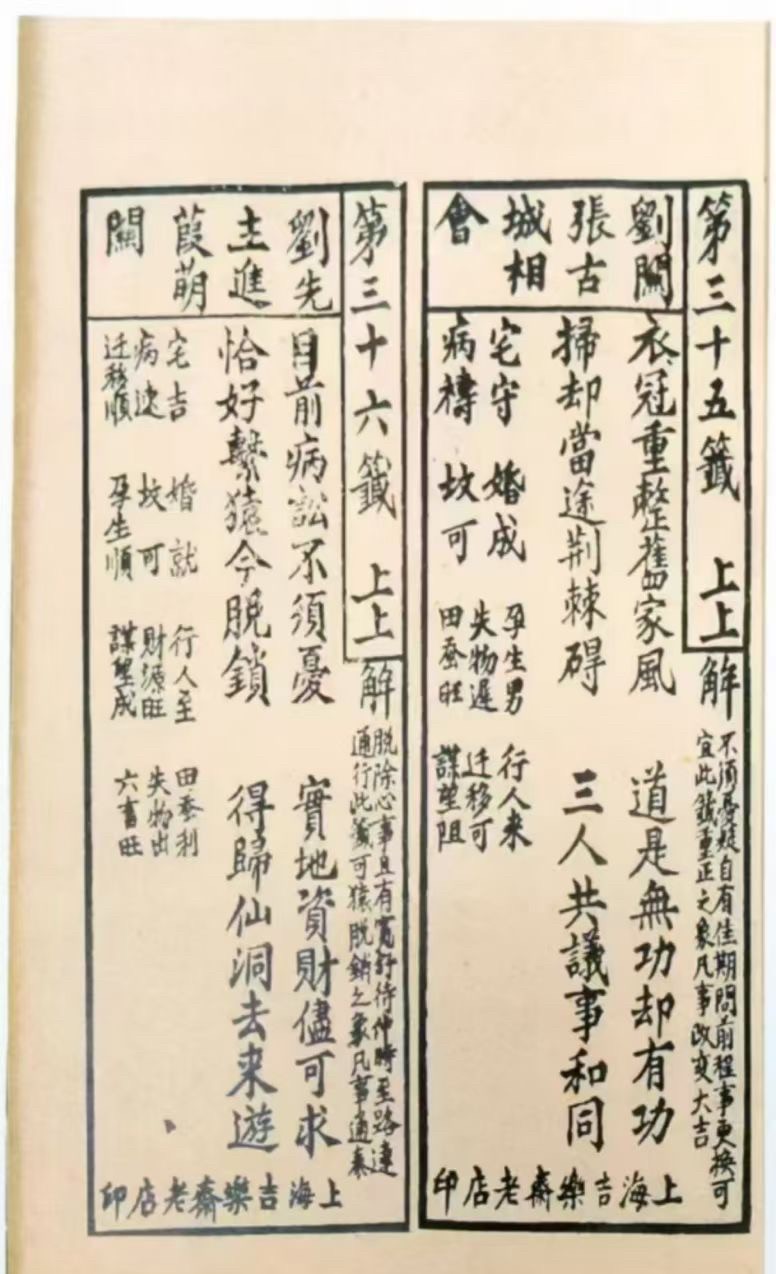 第三十五籤 上上
解
不須憂疑自有佳期問前程事更換可
宜此籤重正之象凡事改变大吉
劉關
張古
城相
會
衣冠重整舊家風 道是無功却有功
掃却當途荆棘碍 三人共議事和同
宅守 婚成 孕生男 行人来
失物遲 迁移可
病禱 坟可 田蚕旺 謀望阻
上海吉樂齋老店印
第三十六籤 上上
解
脱除心事且有寬訐待伸時至路達
通行此籤可猿脱銷之象凡事通泰
劉先
主進
葭萌
關
目前病訟不須憂 實地資財儘可求
恰好繫猿今脱鎖 得歸仙洞去来遊
宅吉 婚就 行人至 田蚕利
病速 坟可 財源旺 失物出
迁移順 孕生順 謀望成 六畜旺
上海吉樂齋老店印